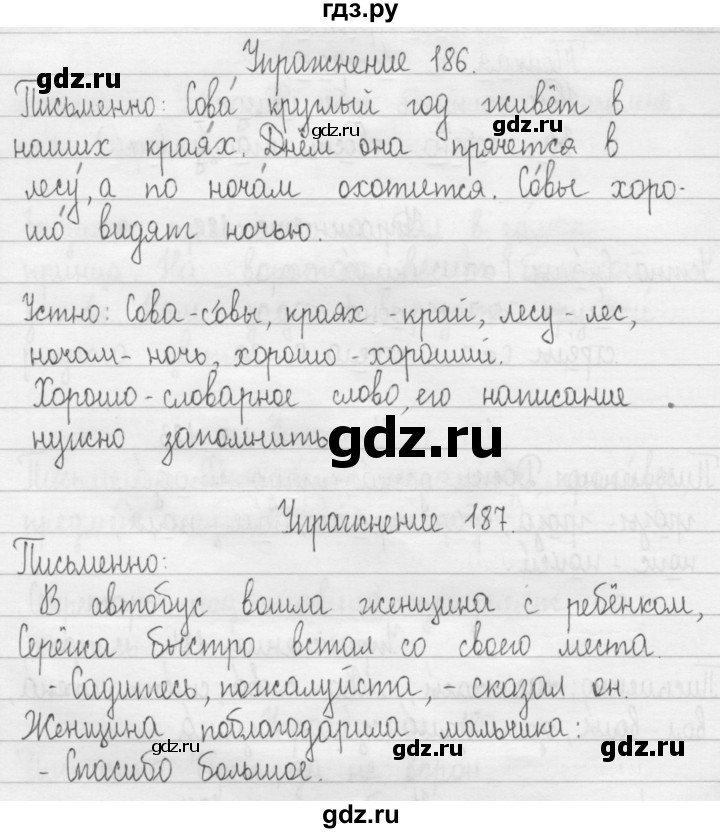 гдз.ру
Упражнение 186.
gdz.ru
Письменно: Сова́ круглый год живёт в
gdz.ru gdz.ru
наших края́х. Днём она прячется в
лесу́, а по ноча́м охотится. Со́вы хоро-
шо́ видят ночью.
Устно: Сова - со́вы, краях - край, лесу - лес,
ночам - ночь, хорошо - хоро́ший.
Хорошо - словарное слово, его написание
нужно запомнить
gdz.ru
Упражнение 187.
gdz.ru
Письменно:
В автобус вошла женщина с ребёнком,
Серёжа быстро встал со своего места.
- Садитесь, пожалуйста, - сказал он.
Женщина поблагодарила мальчика:
gdz.ru gdz.ru gdz.ru
- Спасибо большое.
gdz.ru